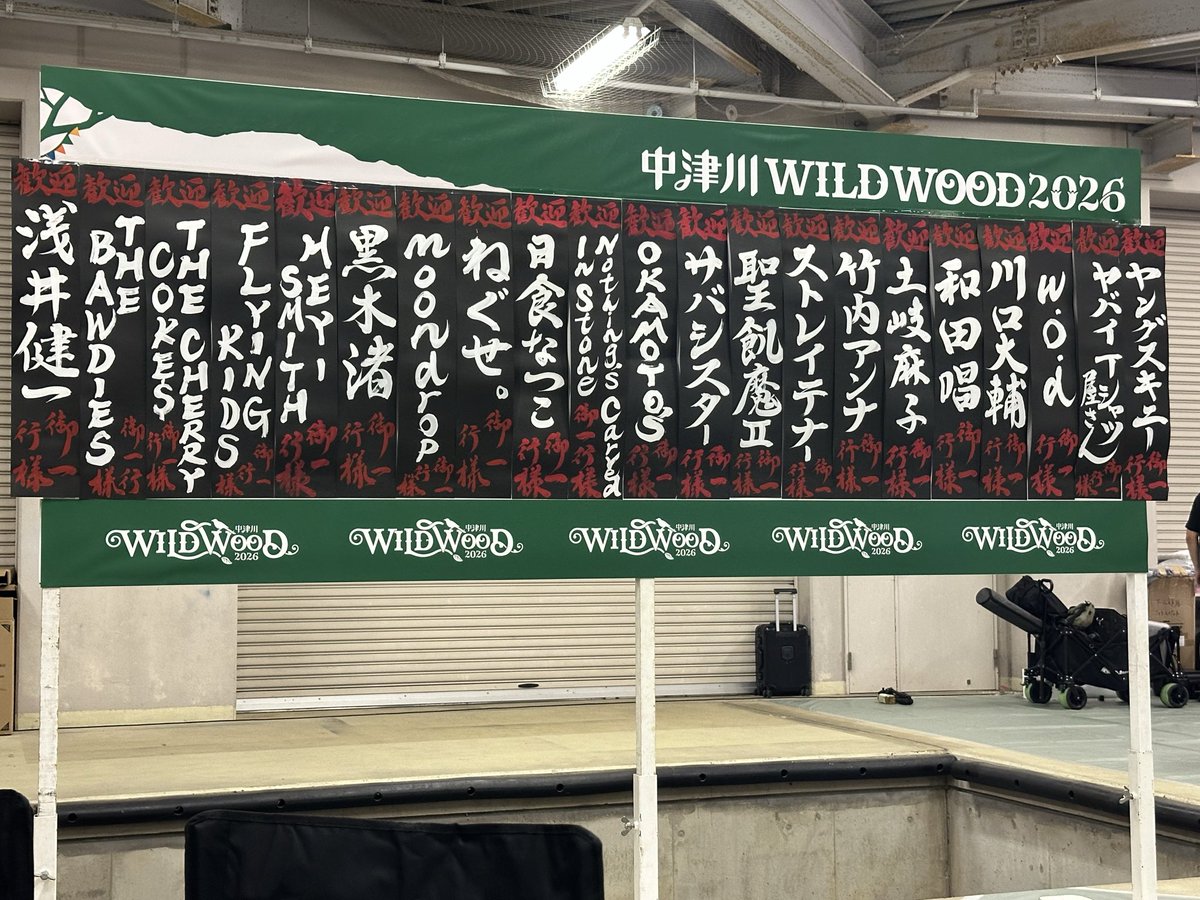 中津川 WILD WOOD 2026
歓迎
浅井健一
御一
行様
歓迎
THE
BAWDIES
御一
行様
歓迎
THE CHERRY
COKE$
御一
行様
歓迎
FLYING
KIDS
御一
行様
歓迎
HEY-
SMITH
御一
行様
歓迎
黒木渚
御一
行様
歓迎
moondrop
御一
行様
歓迎
ねぐせ。
御一
行様
歓迎
日食なつこ
御一
行様
歓迎
Nothing's Carved
In Stone
御一
行様
歓迎
OKAMOTO'S
御一
行様
歓迎
サバシスター
御一
行様
歓迎
聖飢魔II
御一
行様
歓迎
ストレイテナー
御一
行様
歓迎
竹内アンナ
御一
行様
歓迎
土岐麻子
御一
行様
歓迎
和田唱
御一
行様
歓迎
川口大輔
御一
行様
歓迎
w.o.d
御一
行様
歓迎
ヤバイTシャツ
屋さん
御一
行様
歓迎
ヤングスキニー
御一
行様
中津川 WILD WOOD 2026
中津川 WILD WOOD 2026
中津川 WILD WOOD 2026
中津川 WILD WOOD 2026
中津川 WILD WOOD 2026